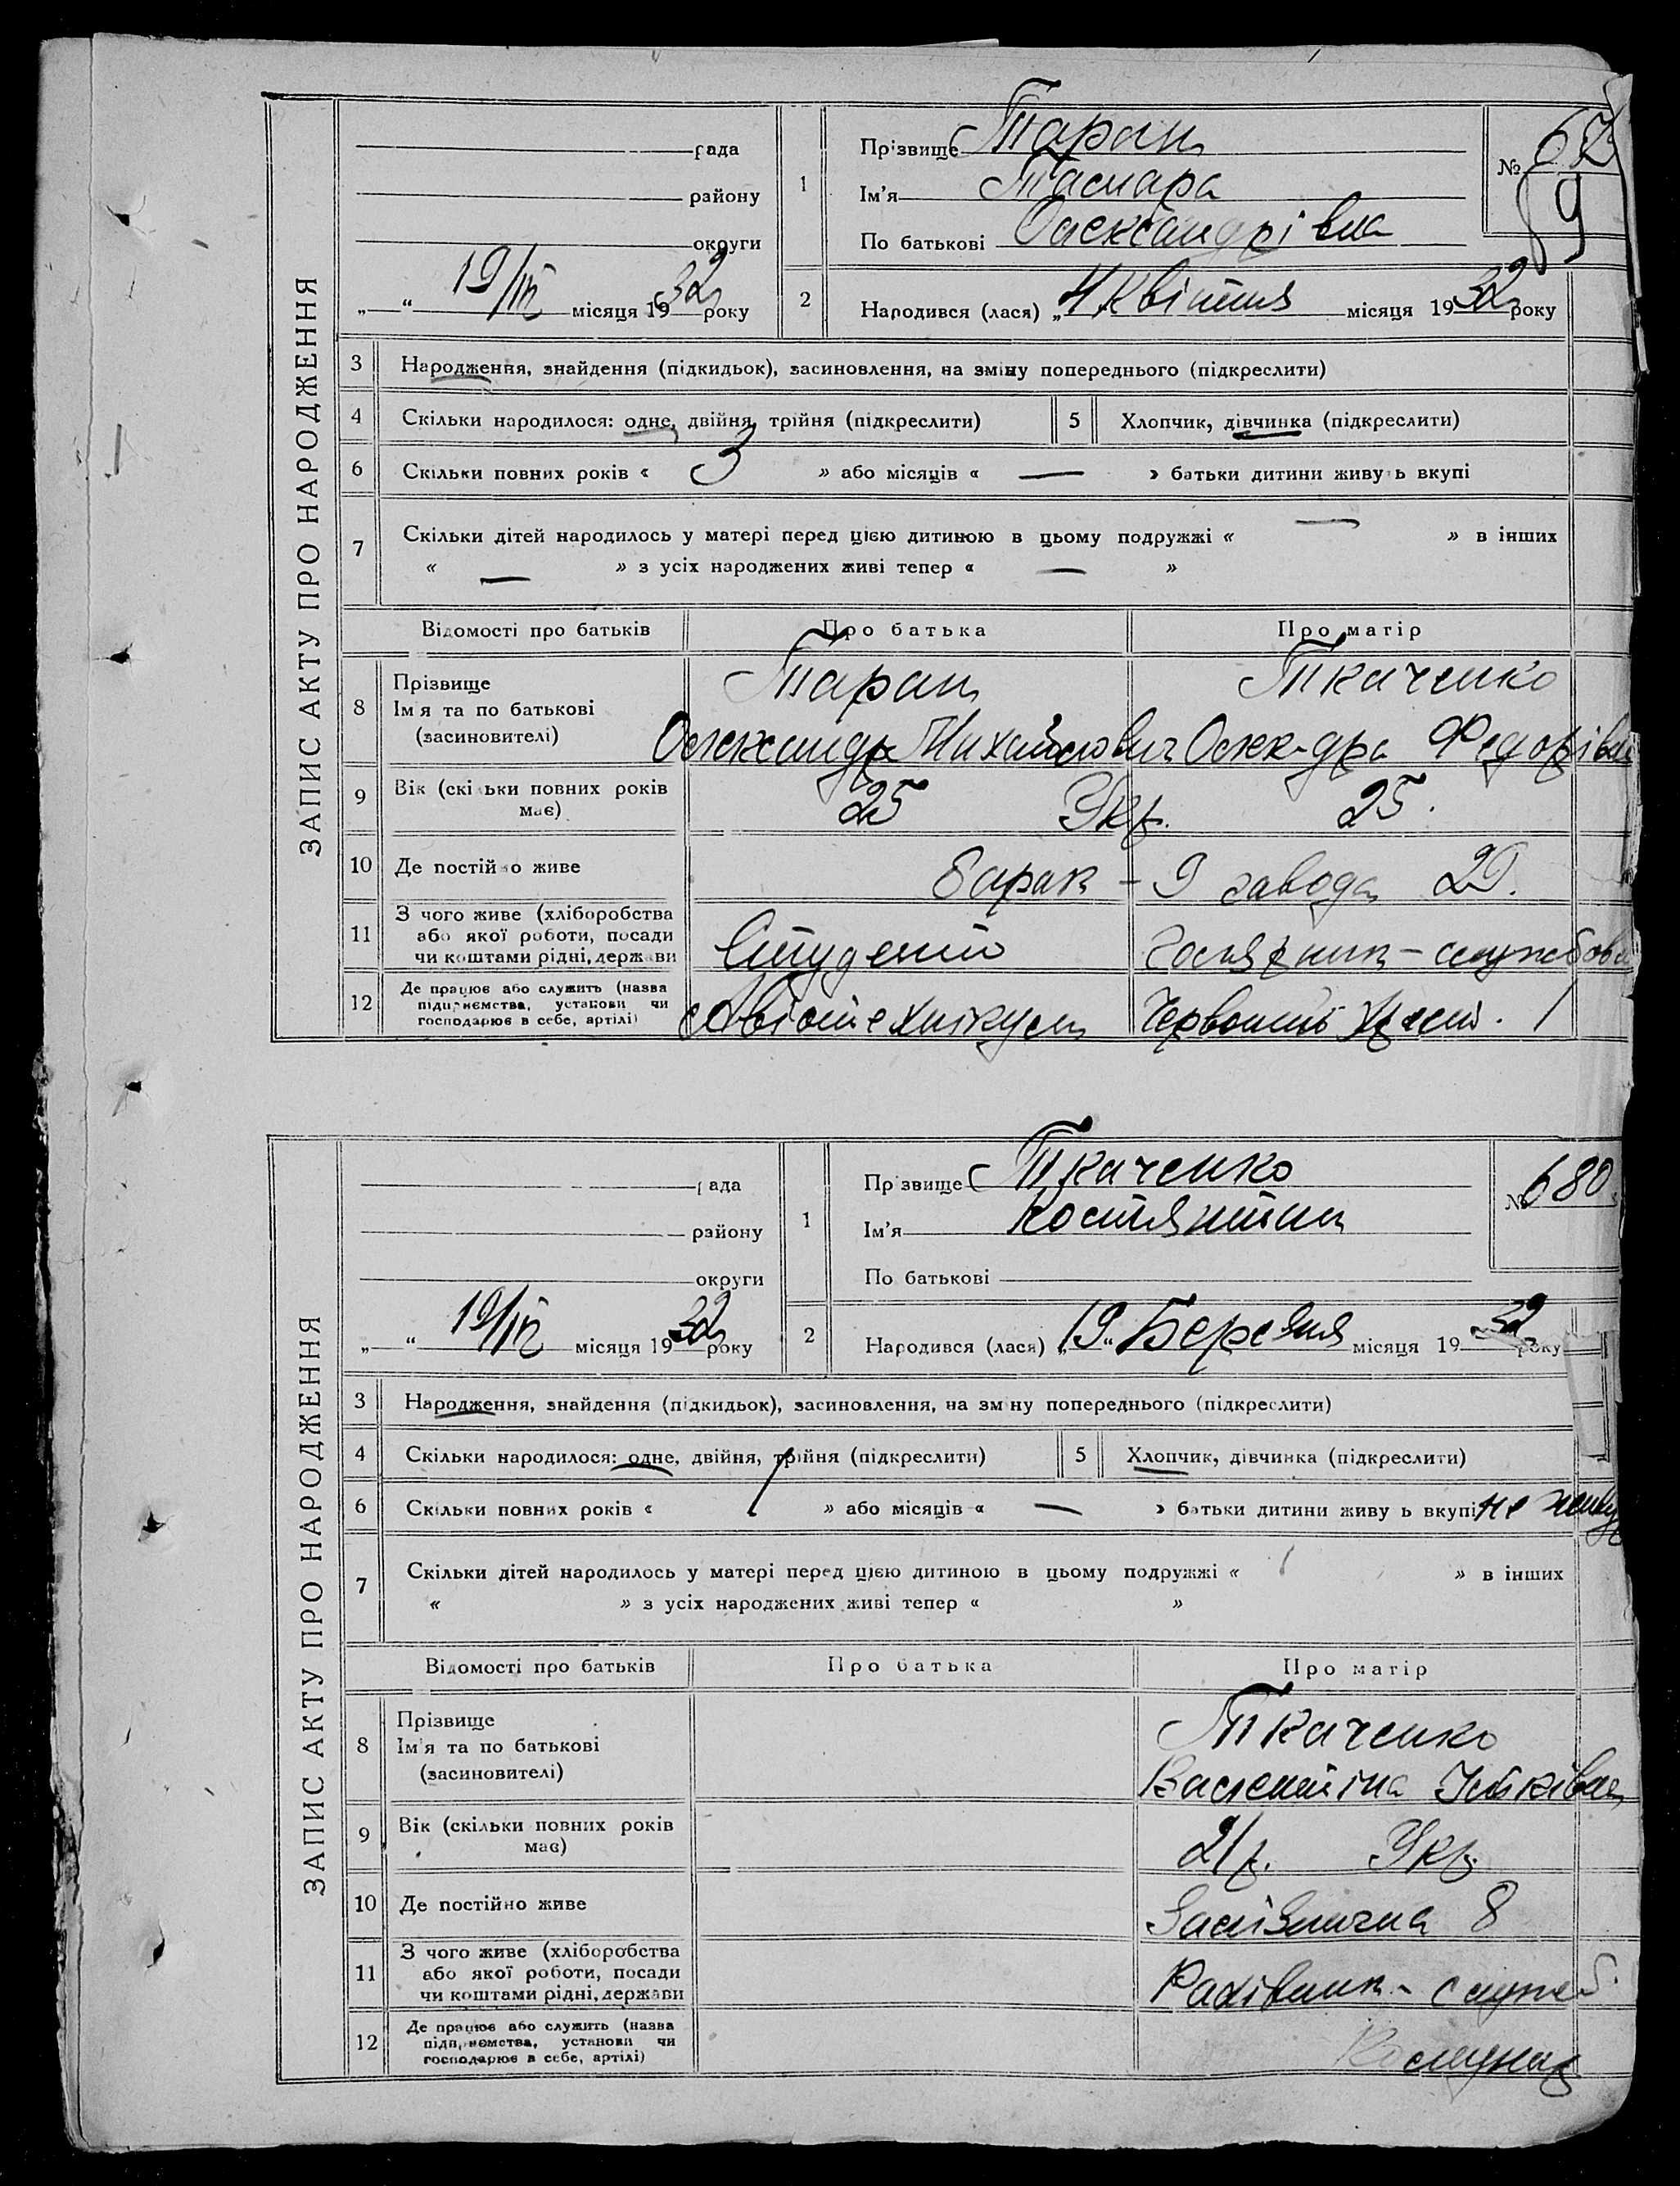 ЗАПИС АКТУ ПРО НАРОДЖЕННЯ
рада
району
округи
„ “ 19/IV місяця 1932 року
1
Прізвище Таран
Ім'я Тамара
По батькові Олександрівна
№ 67
9
2 Народився (лася) „4 Квітня місяця 1932 року
3 Народження, знайдення (підкидьок), засиновлення, на зміну попереднього (підкреслити)
4 Скільки народилося: одне, двійня, трійня (підкреслити) 5 Хлопчик, дівчинка (підкреслити)
6 Скільки повних років « 3 » або місяців « — » батьки дитини живуть вкупі
7 Скільки дітей народилось у матері перед цією дитиною в цьому подружжі « — » в інших
« — » з усіх народжених живі тепер « — »
Відомості про батьків Про батька Про матір
8 Прізвище Ім'я та по батькові (засиновителі)
Таран Ткаченко
Олександр Михайлович Олек-дра Федорівна
9 Вік (скільки повних років має) 25 Укр. 25.
10 Де постійно живе Барак - 9 завода 29.
11 З чого живе (хліборобства або якої роботи, посади чи коштами рідні, держави Студент службов
12 Де працює або служить (назва підприємства, установи чи господарює в себе, артілі) Авіотехнікум Червоний Хрест.
ЗАПИС АКТУ ПРО НАРОДЖЕННЯ
рада
району
округи
„ “ 19/IV місяця 1932 року
1
Прізвище Ткаченко
Ім'я Костянтин
По батькові
№ 680
2 Народився (лася) „19“ Березня місяця 1932 року
3 Народження, знайдення (підкидьок), засиновлення, на зміну попереднього (підкреслити)
4 Скільки народилося: одне, двійня, трійня (підкреслити) 5 Хлопчик, дівчинка (підкреслити)
6 Скільки повних років « » або місяців « — » батьки дитини живуть вкупі не живу
7 Скільки дітей народилось у матері перед цією дитиною в цьому подружжі « » в інших
« » з усіх народжених живі тепер « »
Відомості про батьків Про батька Про матір
8 Прізвище Ім'я та по батькові (засиновителі)
Ткаченко
Валентіна
9 Вік (скільки повних років має) 21 р. Укр.
10 Де постійно живе Залізнична 8
11 З чого живе (хліборобства або якої роботи, посади чи коштами рідні, держави Рахівник - служб.
12 Де працює або служить (назва підприємства, установи чи господарює в себе, артілі) Комунар